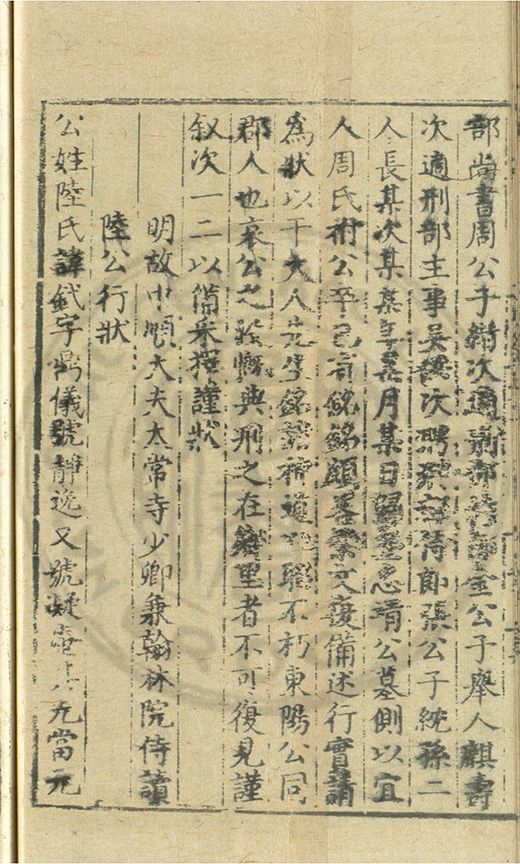 部尚書周公子綃次適刑部尚書金公子舉人麒壽
次適刑部主事吳次聘禮部侍郎張公子統孫二
人長某次某某年某月某日歸葬恭靖公墓側以宜
人周氏祔公卒已有銘銘顯文復備述行實請
為狀以干大人先生銘諸不朽東陽公同
郡人也哀公之與刑之在鄉里者不可復見謹
叙次一二以備采擇謹狀
明故中順大夫太常寺少卿兼翰林院侍讀
陸公行狀
公姓陸氏諱釴字鼎儀號靜逸又號凝壺其先當元